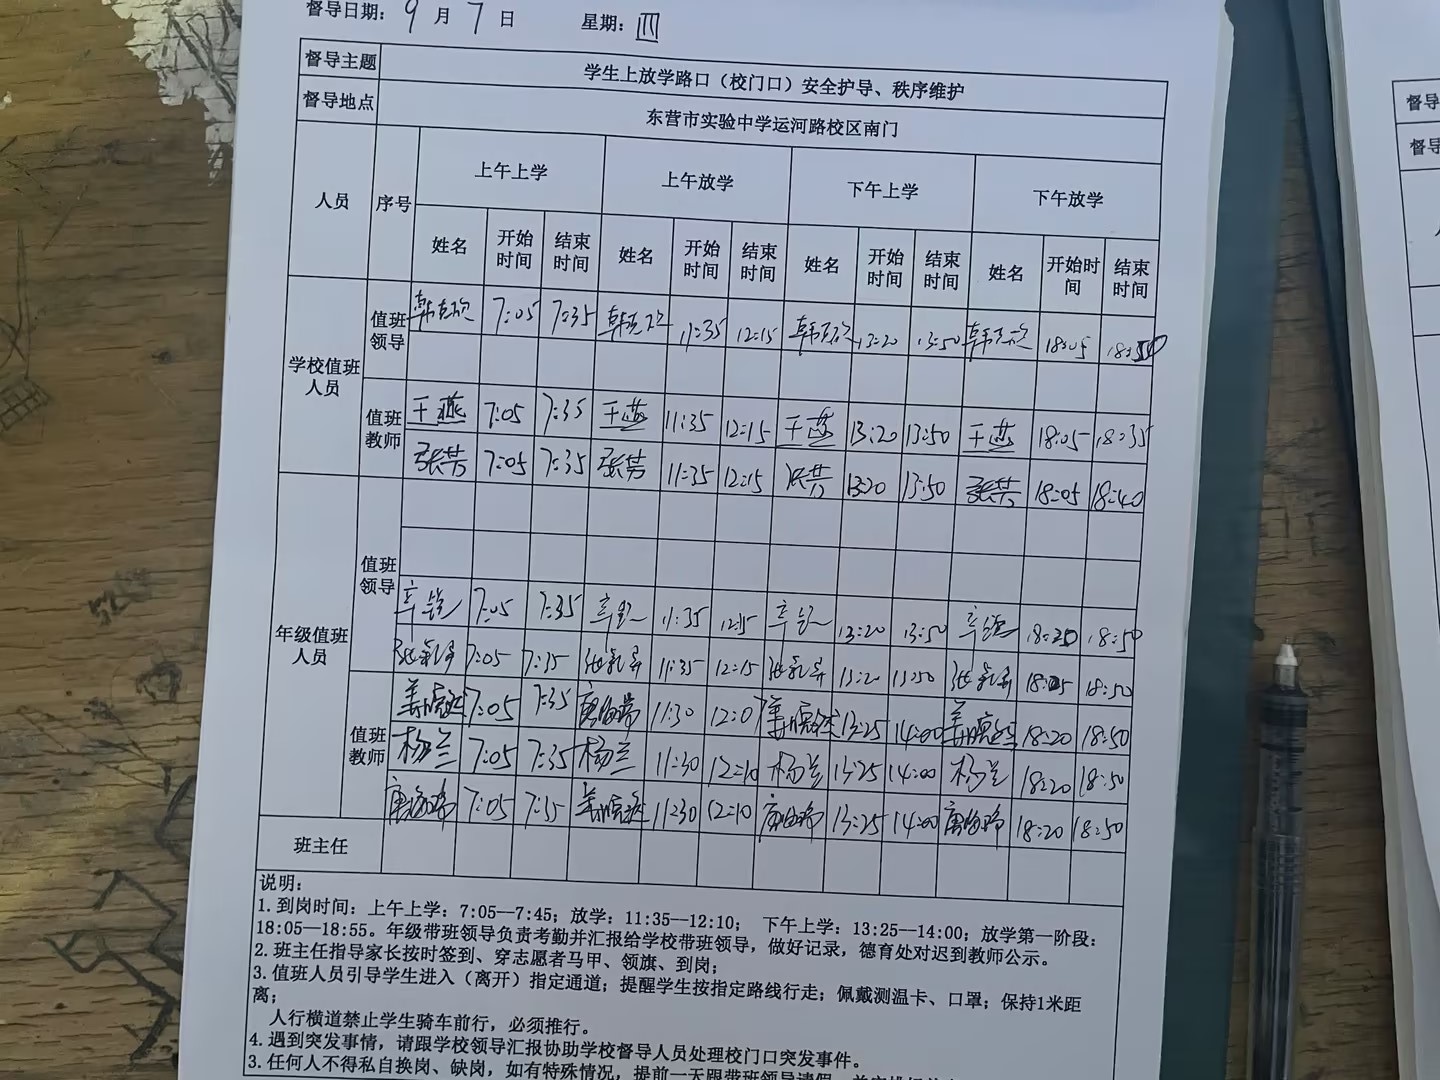 督导日期: 9 月 7 日 星期: 四
督导主题 学生上放学路口（校门口）安全护导、秩序维护
督导地点 东营市实验中学运河路校区南门
人员 序号 上午上学 上午放学 下午上学 下午放学
姓名 开始时间 结束时间 姓名 开始时间 结束时间 姓名 开始时间 结束时间 姓名 开始时间 结束时间
学校值班人员
值班领导 7:05 7:35 11:35 12:15 13:20 13:50 18:05
值班教师 王燕 7:05 7:35 王燕 11:35 12:15 王燕 13:20 13:50 王燕 18:05 18:35
张芳 7:05 7:35 张芳 11:35 12:15 张芳 13:20 13:50 张芳 18:05 18:40
年级值班人员
值班领导 7:05 7:35 11:35 12:15 13:20 13:50 18:50
7:05 7:35 11:35 12:15 13:20 13:50 18:50
值班教师 7:05 7:35 11:30 13:25 14:00 18:20 18:50
杨兰 7:05 7:35 杨兰 11:30 12:10 杨兰 13:25 14:00 杨兰 18:20 18:50
7:05 7:35 11:30 12:10 13:25 14:00 18:20 18:50
班主任
说明:
1. 到岗时间: 上午上学: 7:05—7:45; 放学: 11:35—12:10; 下午上学: 13:25—14:00; 放学第一阶段:
18:05—18:55。年级带班领导负责考勤并汇报给学校带班领导，做好记录，德育处对迟到教师公示。
2. 班主任指导家长按时签到、穿志愿者马甲、领旗、到岗;
3. 值班人员引导学生进入（离开）指定通道; 提醒学生按指定路线行走; 佩戴测温卡、口罩; 保持1米距
离;
人行横道禁止学生骑车前行，必须推行。
4. 遇到突发事情，请跟学校领导汇报协助学校督导人员处理校门口突发事件。
3. 任何人不得私自换岗、缺岗，如有特殊情况，提前一天跟带班领导请假
督导
督导